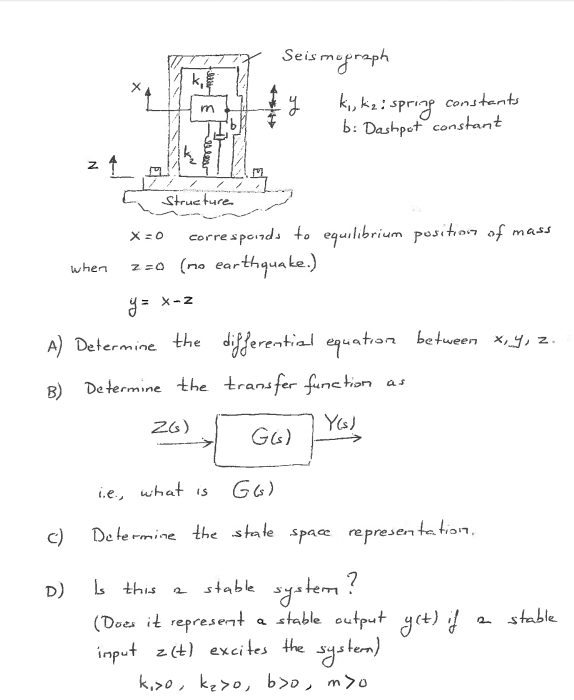 Seismograph
x
k₁
m
y
k₁, k₂: spring constants
b
b: Dashpot constant
k₂
z
Structure
x=0 corresponds to equilibrium position of mass
when z=0 (no earthquake.)
y = x-z
A) Determine the differential equation between x, y, z.
B) Determine the transfer function as
Z(s)
G(s)
Y(s)
i.e., what is G(s)
C) Determine the state space representation.
D) Is this a stable system?
(Does it represent a stable output y(t) if a stable
input z(t) excites the system)
k₁>0, k₂>0, b>0, m>0